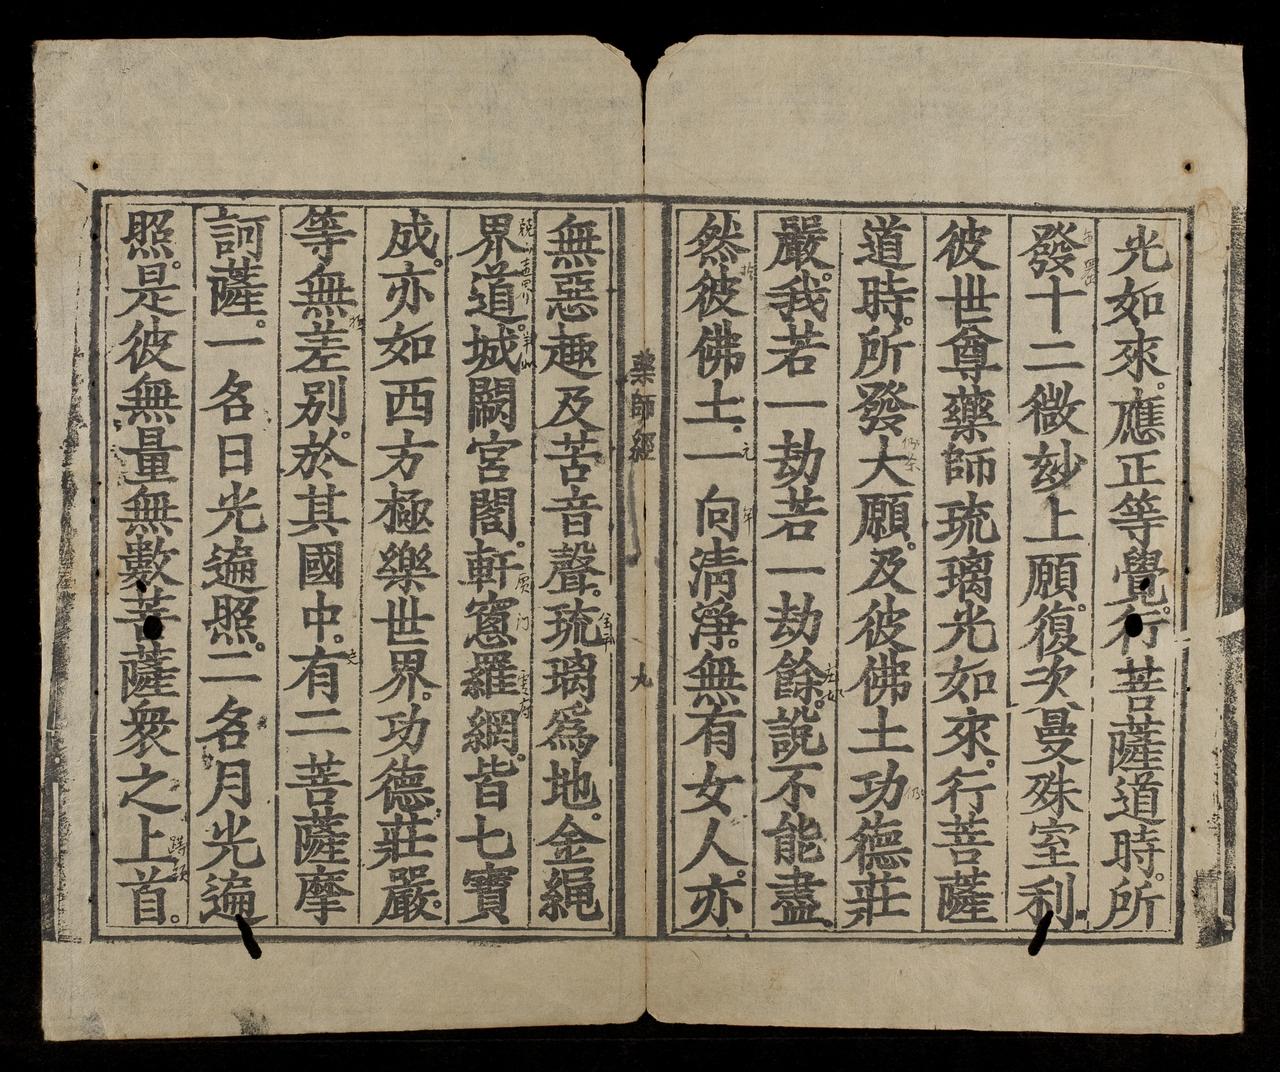 光如來。應正等覺。行菩薩道時。所
發十二微玅上願。復次曼殊室利
彼世尊藥師琉璃光如來。行菩薩
道時。所發大願。及彼佛土功德莊
嚴。我若一劫若一劫餘。說不能盡。
然彼佛土。一向清淨。無有女人。亦
藥師經 九
無惡趣及苦音聲。琉璃為地。金繩
界道。城闕宮閣。軒窻羅網。皆七寶
成。亦如西方極樂世界。功德莊嚴。
等無差別。於其國中。有二菩薩摩
訶薩。一名日光遍照。二名月光遍
照。是彼無量無數菩薩衆之上首。